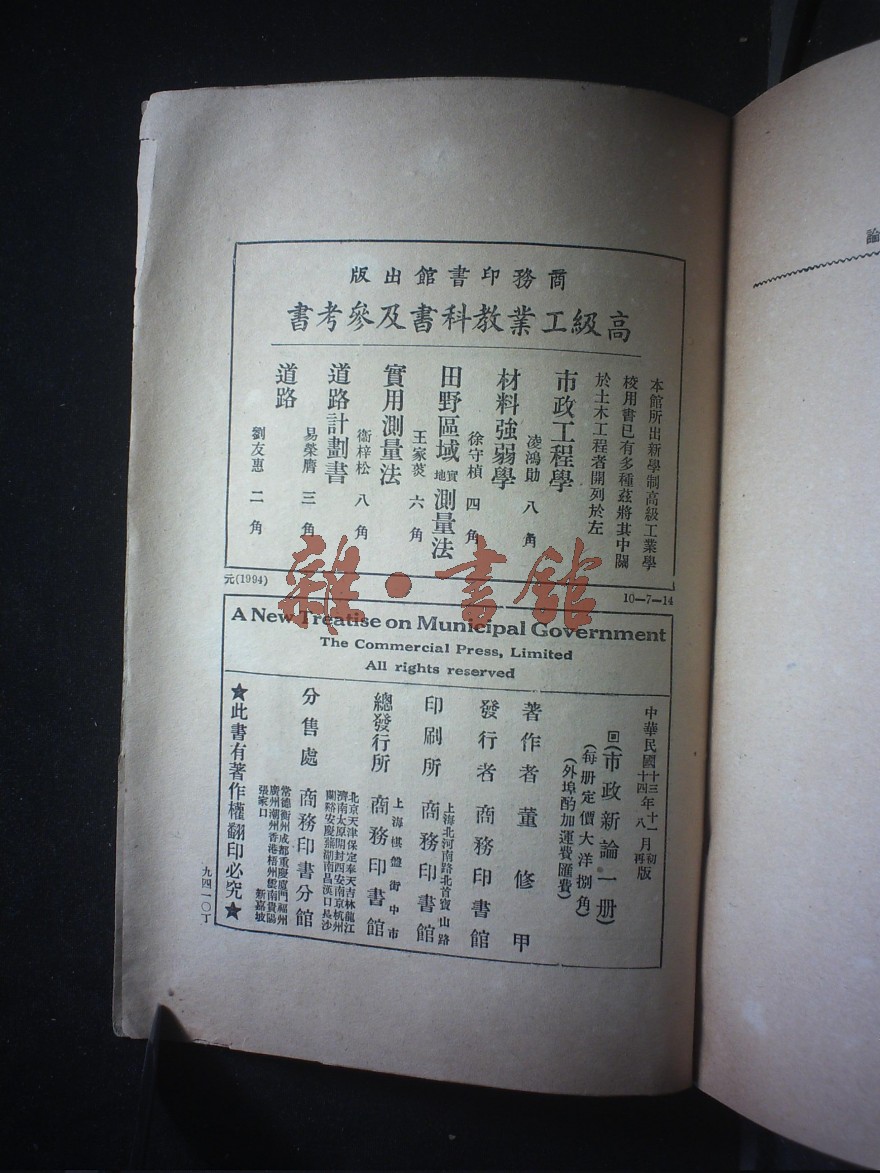 商務印書館出版
高級工業教科書及參考書
本館所出新學制高級工業學
校用書已有多種茲將其中關
於土木工程者開列於左
市政工程學
凌鴻勛 八角
材料強弱學
徐守楨 四角
田野區域實地測量法
王家菼 六角
實用測量法
衞梓松 八角
道路計劃書
易榮膺 三角
道路
劉友惠 二角
元(1994)
10—7—14
雜·書館
A New Treatise on Municipal Government
The Commercial Press, Limited
All rights reserved
中華民國十三年十一月初版
十四年八月再版
(市政新論一册)
(每册定價大洋捌角)
(外埠酌加運費匯費)
著作者 董修甲
發行者 商務印書館
上海北河南路北首寶山路
印刷所 商務印書館
上海棋盤街中市
總發行所 商務印書館
北京天津保定奉天吉林龍江
濟南太原開封西安南京杭州
蘭谿安慶蕪湖南昌漢口長沙
分售處 商務印書分館
常德衡州成都重慶廈門福州
廣州潮州香港梧州雲南貴陽
張家口 新嘉坡
★此書有著作權翻印必究★
九四一〇丁
論